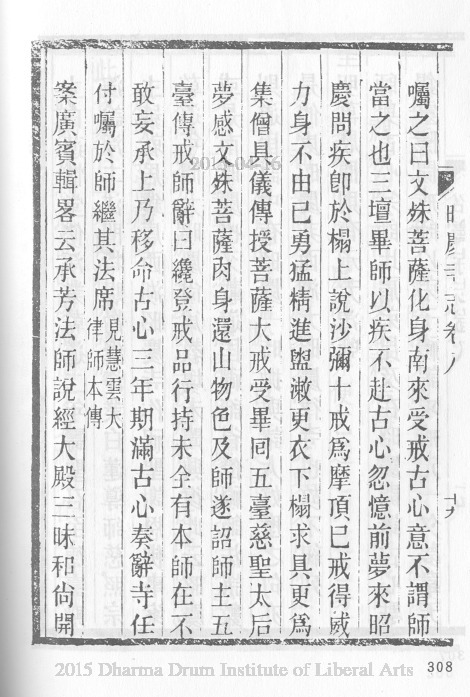 昭慶寺志卷八
十九
囑之曰文殊菩薩化身南來受戒古心意不謂師
當之也三壇畢師以疾不赴古心忽憶前夢來昭
慶問疾卽於榻上說沙彌十戒爲摩頂已戒得威
力身不由已勇猛精進盥漱更衣下榻求具更爲
集僧具儀傳授菩薩大戒受畢囘五臺慈聖太后
夢感文殊菩薩肉身還山物色及師遂詔師主五
臺傳戒師辭曰纔登戒品行持未全有本師在不
敢妄承上乃移命古心三年期滿古心奏辭寺任
付囑於師繼其法席見慧雲大
律師本傳
案廣賓輯畧云承芳法師說經大殿三昧和尙開
308
2015 Dharma Drum Institute of Liberal Arts